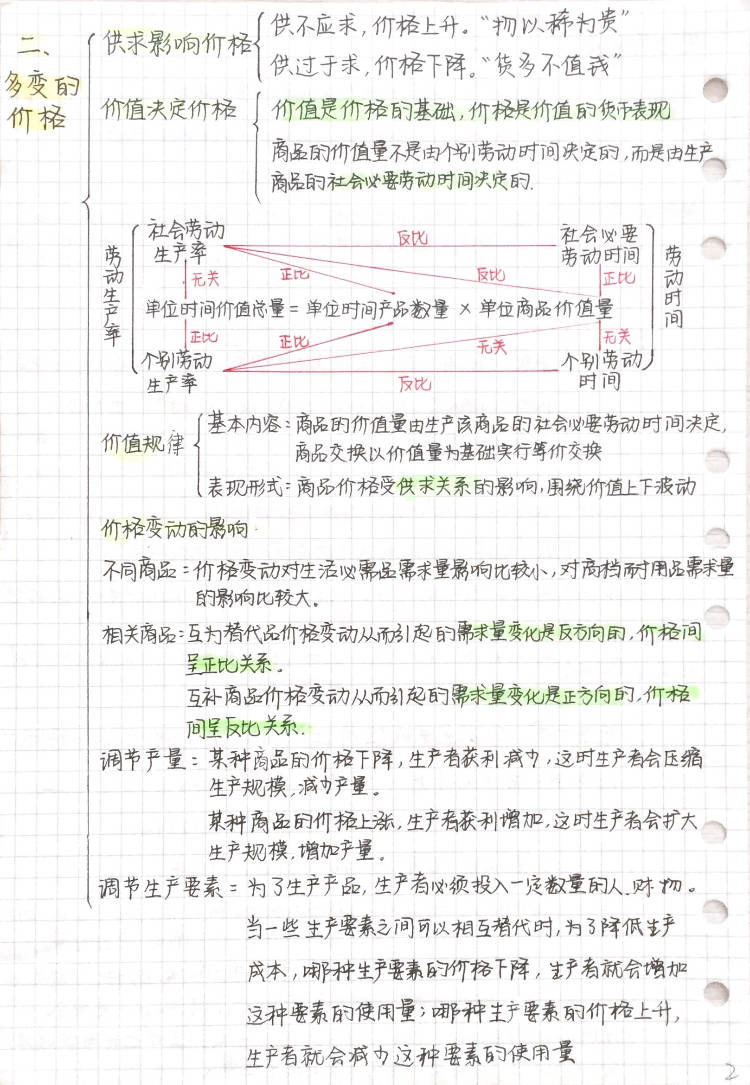 二、
多变的
价格
供求影响价格
供不应求，价格上升。“物以稀为贵”
供过于求，价格下降。“货多不值钱”
价值决定价格
价值是价格的基础，价格是价值的货币表现
商品的价值量不是由个别劳动时间决定的，而是由生产
商品的社会必要劳动时间决定的.
劳动生产率
社会劳动
生产率
反比
社会必要
劳动时间
劳动时间
无关
正比
反比
正比
单位时间价值总量 = 单位时间产品数量 × 单位商品价值量
正比
正比
无关
无关
个别劳动
生产率
反比
个别劳动
时间
价值规律
基本内容：商品的价值量由生产该商品的社会必要劳动时间决定，
商品交换以价值量为基础实行等价交换
表现形式：商品价格受供求关系的影响，围绕价值上下波动
价格变动的影响
不同商品：价格变动对生活必需品需求量影响比较小，对高档耐用品需求量
的影响比较大。
相关商品：互为替代品价格变动从而引起的需求量变化是反方向的，价格间
呈正比关系。
互补商品价格变动从而引起的需求量变化是正方向的，价格
间呈反比关系.
调节产量：某种商品的价格下降，生产者获利减少，这时生产者会压缩
生产规模，减少产量。
某种商品的价格上涨，生产者获利增加，这时生产者会扩大
生产规模，增加产量。
调节生产要素：为了生产产品，生产者必须投入一定数量的人、财、物。
当一些生产要素之间可以相互替代时，为了降低生产
成本，哪种生产要素的价格下降，生产者就会增加
这种要素的使用量；哪种生产要素的价格上升，
生产者就会减少这种要素的使用量
2